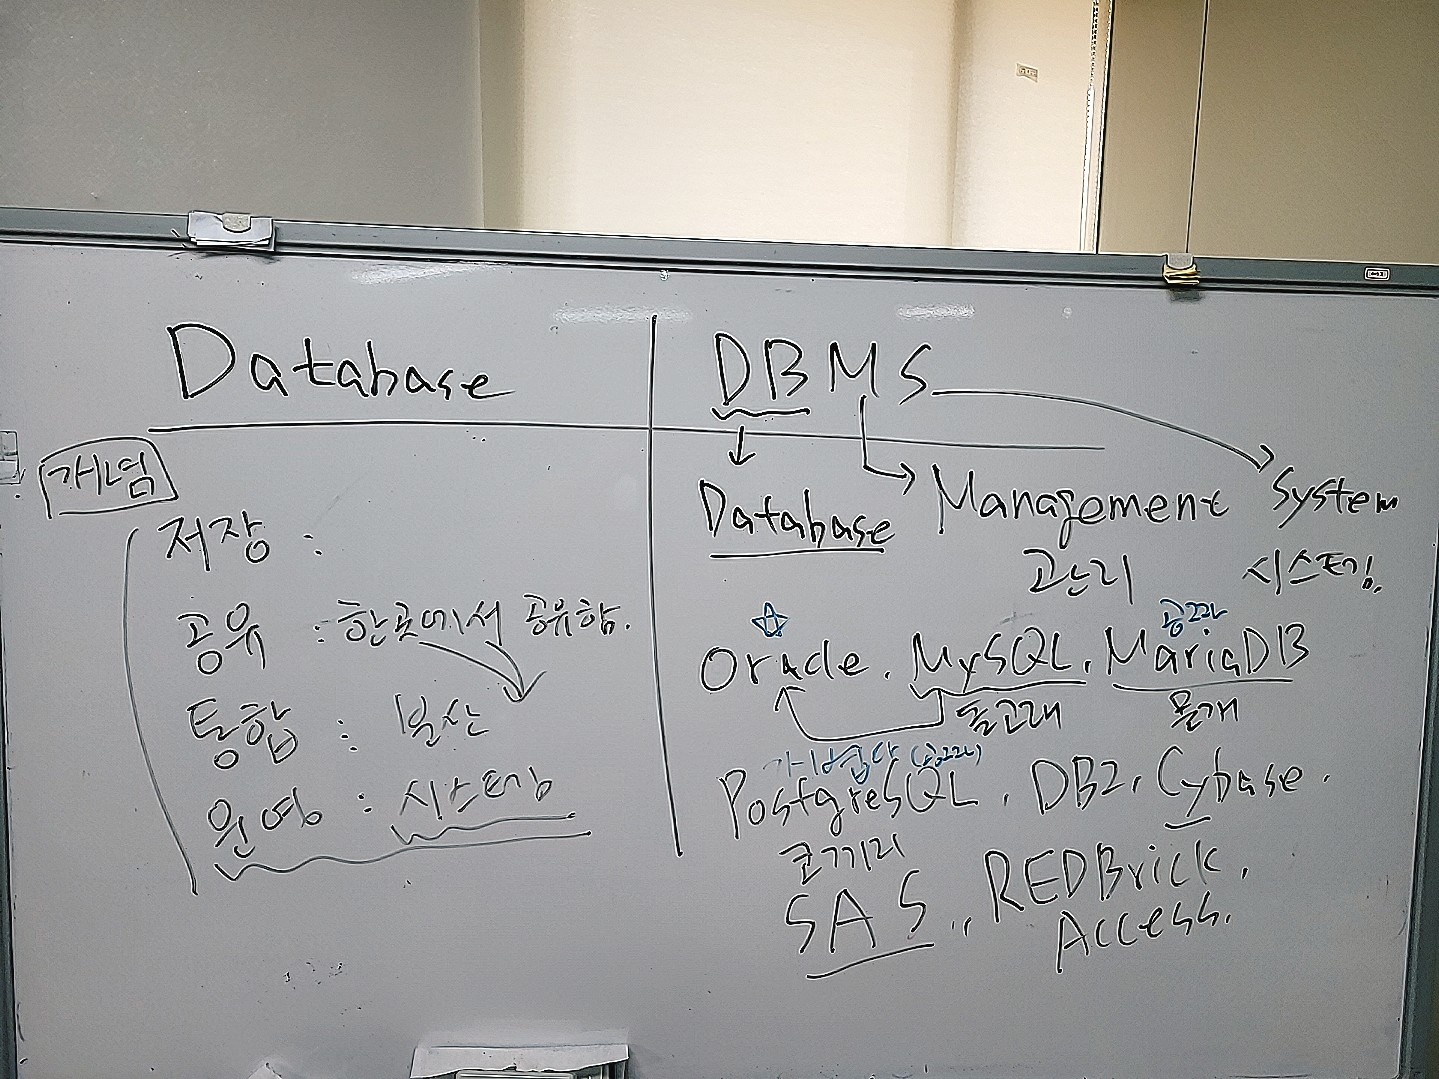 Database
개념
저장 :
공유 : 한곳에서 공유함.
통합 : 분산
운영 : 시스템
DBMS
Database Management System
관리 시스템.
공짜
Oracle. MySQL. MariaDB
돌고래 물개
(공짜)
PostgreSQL. DB2. Cybase.
코끼리
SAS.. REDBrick.
Access.